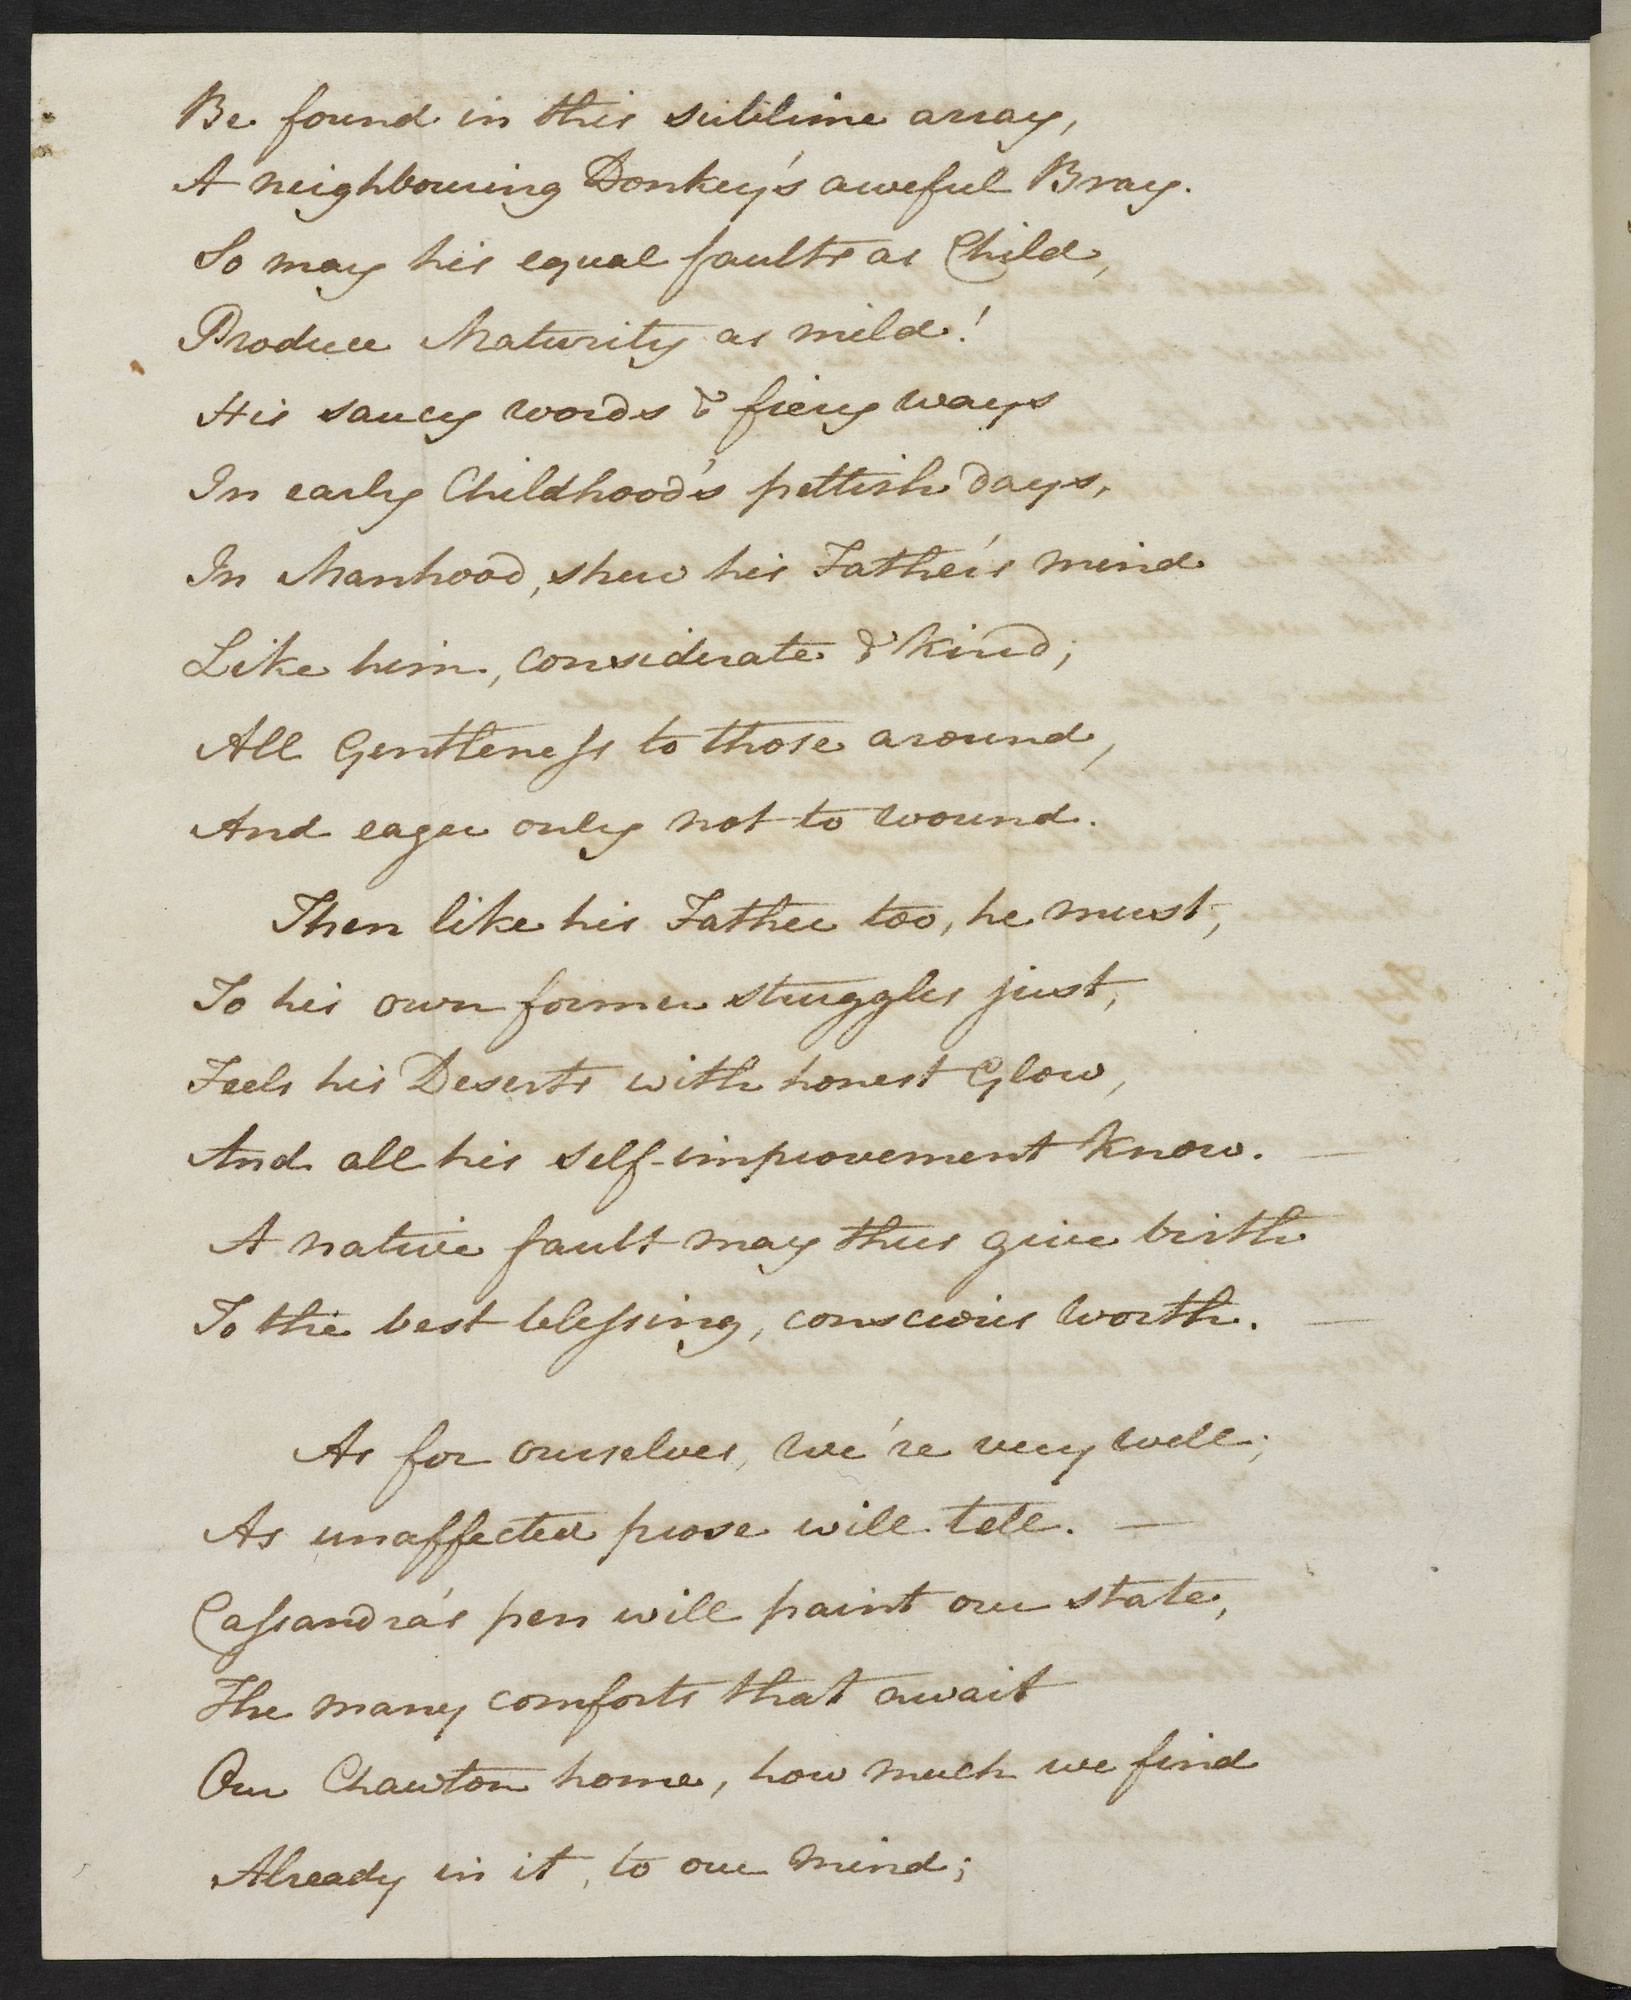 Be found in this sublime array,
A neighbouring Donkey's aweful Bray.
So may his equal faults as Child,
Produce Maturity as mild!
His saucy words & fiery ways
In early Childhood's pettish days,
In Manhood, shew his Father's mind
Like him, considerate & kind;
All Gentleness to those around,
And eager only not to wound.
Then like his Father too, he must,
To his own former struggles just,
Feels his Deserts with honest Glow,
And all his self-improvement know. —
A native fault may thus give birth
To the best blessing, conscious worth. —
As for ourselves, we're very well;
As unaffected prose will tell. —
Cassandra's pen will paint our state,
The many comforts that await
Our Chawton home, how much we find
Already in it, to our mind;